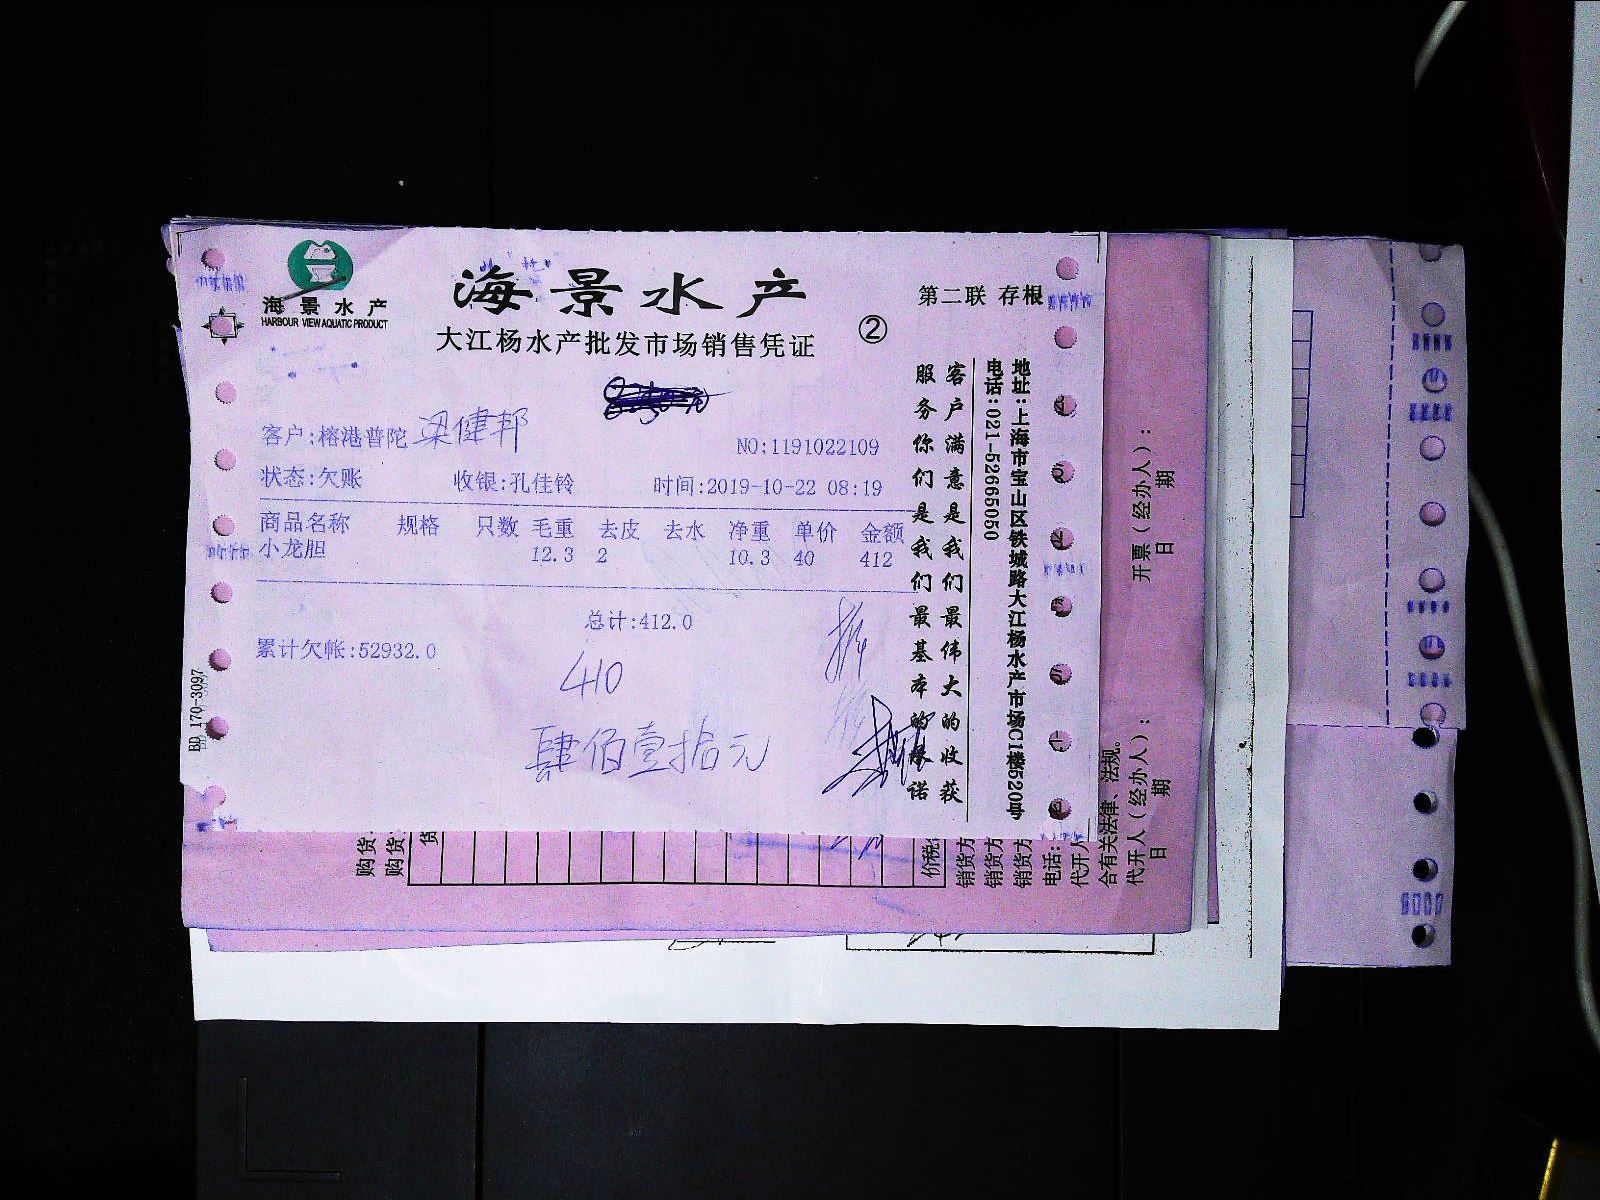 海景水产
HARBOUR VIEW AQUATIC PRODUCT
海景水产
大江杨水产批发市场销售凭证
②
第二联 存根
客户:榕港普陀 梁健邦
NO:1191022109
状态:欠账 收银:孔佳铃 时间:2019-10-22 08:19
商品名称 规格 只数 毛重 去皮 去水 净重 单价 金额
小龙胆 12.3 2 10.3 40 412
总计:412.0
累计欠帐:52932.0
410
肆佰壹拾元
BD 170-3097
客户满意是我们最伟大的收获
服务你们是我们最基本的承诺
地址:上海市宝山区铁城路大江杨水产市场C1楼520号
电话:021-52665050
开票(经办人):
日 期
合有关法律、法规。
代开人(经办人):
日 期
购货
购货
货
价税
销货方
销货方
销货方
电话:
代开人